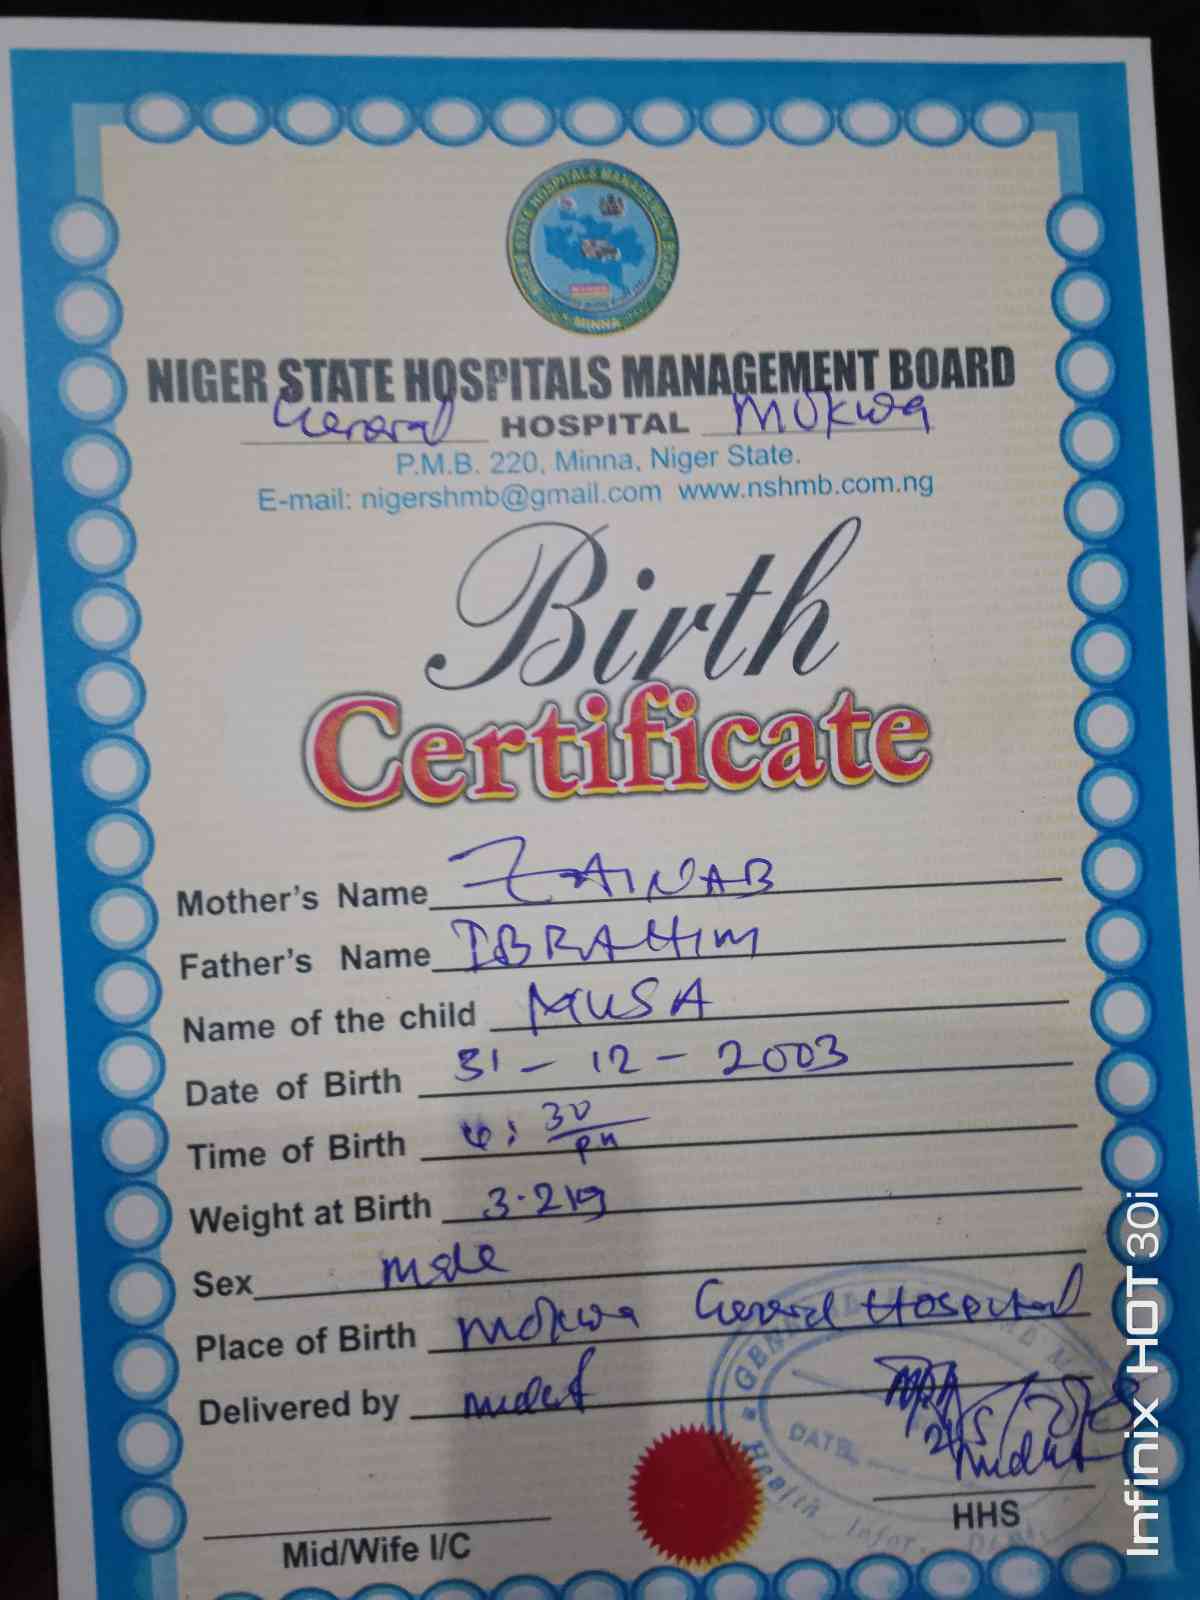 NIGER STATE HOSPITALS MANAGEMENT BOARD
MINNA
NIGER STATE HOSPITALS MANAGEMENT BOARD
General HOSPITAL Mokwa
P.M.B. 220, Minna, Niger State.
E-mail: nigershmb@gmail.com www.nshmb.com.ng
Birth
Certificate
Mother's Name ZAINAB
Father's Name IBRAHIM
Name of the child MUSA
Date of Birth 31 - 12 - 2003
Time of Birth : 30 pm
Weight at Birth 3.2kg
Sex male
Place of Birth Mokwa General Hospital
Delivered by
GENERAL
DATE
Health Infor.
HHS
Mid/Wife I/C
Infinix HOT 30i